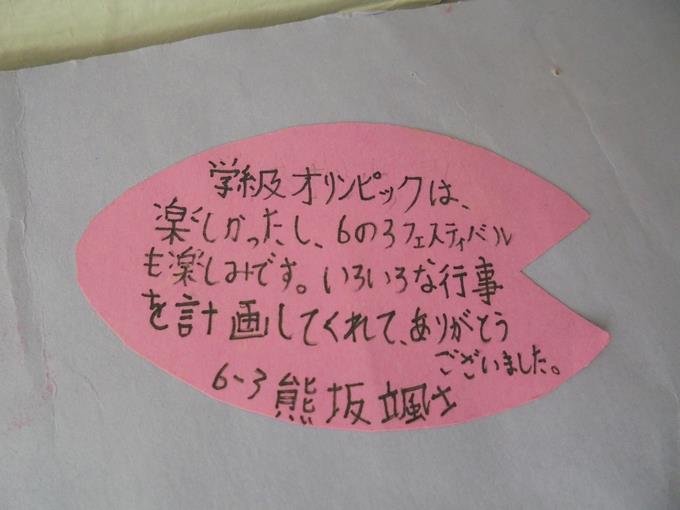 学級オリンピックは、
楽しかったし、6の3フェスティバル
も楽しみです。いろいろな行事
を計画してくれて、ありがとう
ございました。
6-3 熊坂颯士